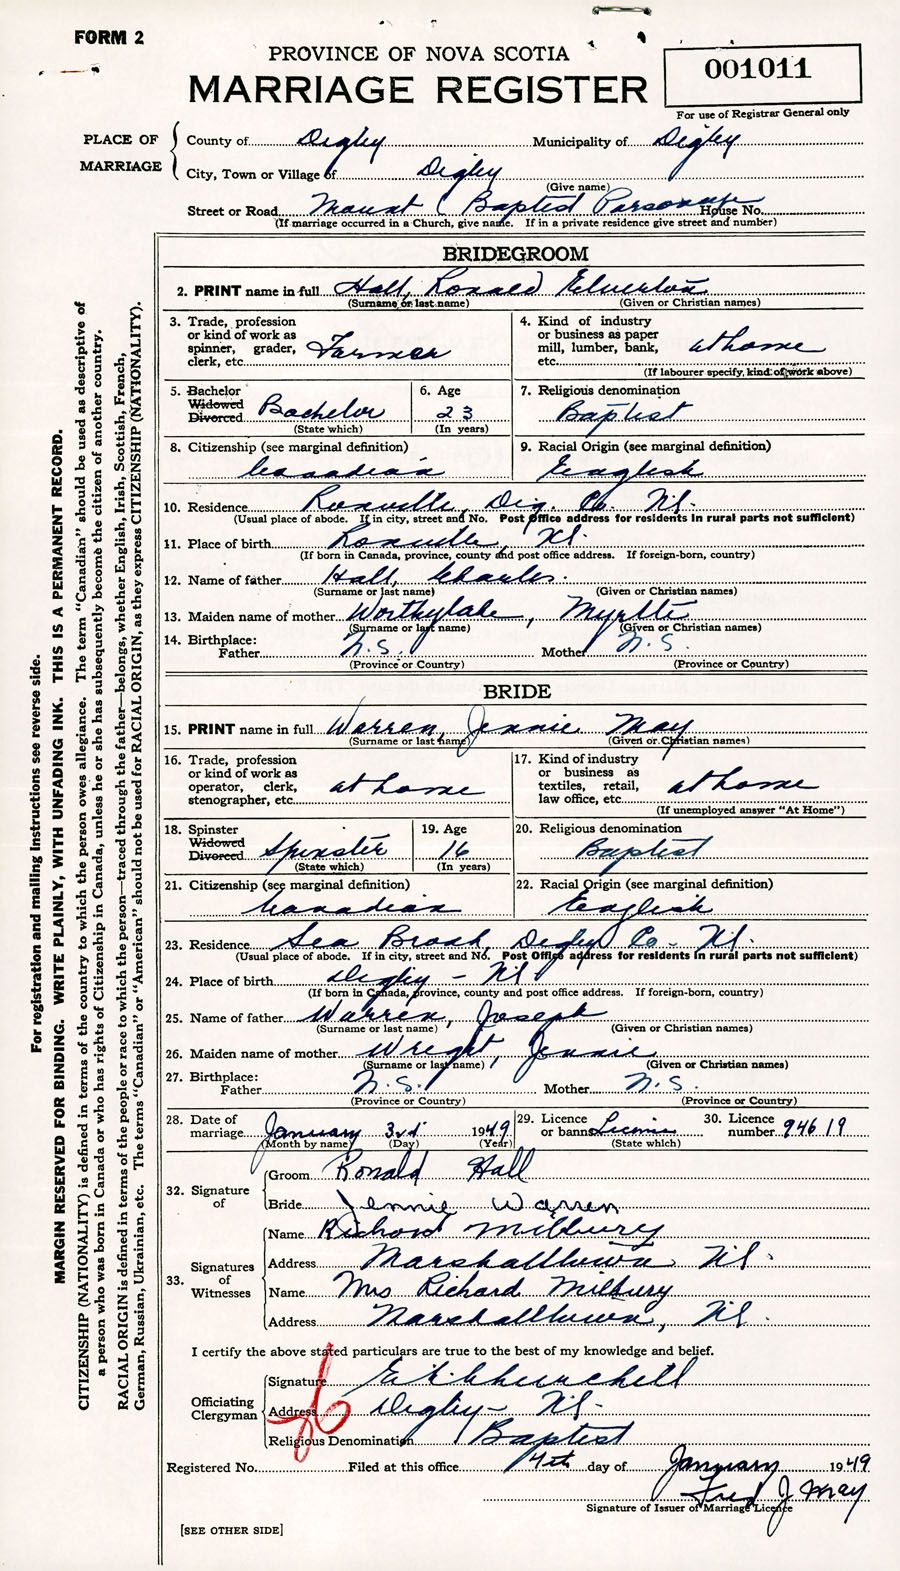 FORM 2
PROVINCE OF NOVA SCOTIA
MARRIAGE REGISTER
001011
For use of Registrar General only
PLACE OF MARRIAGE
County of Digby Municipality of Digby
City, Town or Village of Digby
(Give name)
Street or Road Mount Baptist Parsonage House No.
(If marriage occurred in a Church, give name. If in a private residence give street and number)
BRIDEGROOM
2. PRINT name in full Hall, Ronald
(Surname or last name) (Given or Christian names)
3. Trade, profession or kind of work as spinner, grader, clerk, etc. Farmer
4. Kind of industry or business as paper mill, lumber, bank, etc. at home
(If labourer specify, kind of work above)
5. Bachelor Widowed Divorced Bachelor
(State which)
6. Age 23
(In years)
7. Religious denomination Baptist
8. Citizenship (see marginal definition) Canadian
9. Racial Origin (see marginal definition) English
10. Residence Roxville, Dig. Co. N.S.
(Usual place of abode. If in city, street and No. Post Office address for residents in rural parts not sufficient)
11. Place of birth Roxville, N.S.
(If born in Canada, province, county and post office address. If foreign-born, country)
12. Name of father Hall, Charles.
(Surname or last name) (Given or Christian names)
13. Maiden name of mother Worthylake, Myrtle
(Surname or last name) (Given or Christian names)
14. Birthplace:
Father N.S. Mother N.S.
(Province or Country) (Province or Country)
BRIDE
15. PRINT name in full Warren, Jennie May
(Surname or last name) (Given or Christian names)
16. Trade, profession or kind of work as operator, clerk, stenographer, etc. at home
17. Kind of industry or business as textiles, retail, law office, etc. at home
(If unemployed answer "At Home")
18. Spinster Widowed Divorced Spinster
(State which)
19. Age 16
(In years)
20. Religious denomination Baptist
21. Citizenship (see marginal definition) Canadian
22. Racial Origin (see marginal definition) English
23. Residence Sea Brook, Digby Co. N.S.
(Usual place of abode. If in city, street and No. Post Office address for residents in rural parts not sufficient)
24. Place of birth Digby - N.S.
(If born in Canada, province, county and post office address. If foreign-born, country)
25. Name of father Warren, Joseph
(Surname or last name) (Given or Christian names)
26. Maiden name of mother Wright, Jennie
(Surname or last name) (Given or Christian names)
27. Birthplace:
Father N.S. Mother N.S.
(Province or Country) (Province or Country)
28. Date of marriage January 3rd 1949
(Month by name) (Day) (Year)
29. Licence or banns License
(State which)
30. Licence number 94619
32. Signature of
Groom Ronald Hall
Bride Jennie Warren
33. Signatures of Witnesses
Name Richard Milbury
Address Marshalltown N.S.
Name Mrs Richard Milbury
Address Marshalltown, N.S.
I certify the above stated particulars are true to the best of my knowledge and belief.
Officiating Clergyman
Signature Churchill
Address Digby - N.S.
Religious Denomination Baptist
Registered No. Filed at this office 4th day of January 1949
Fred J May
Signature of Issuer of Marriage Licence
[SEE OTHER SIDE]
For registration and mailing Instructions see reverse side.
MARGIN RESERVED FOR BINDING. WRITE PLAINLY, WITH UNFADING INK. THIS IS A PERMANENT RECORD.
CITIZENSHIP (NATIONALITY) is defined in terms of the country to which the person owes allegiance. The term "Canadian" should be used as descriptive of
a person who was born in Canada or who has rights of Citizenship in Canada, unless he or she has subsequently become the citizen of another country.
RACIAL ORIGIN is defined in terms of the people or race to which the person—traced through the father—belongs, whether English, Irish, Scottish, French,
German, Russian, Ukrainian, etc. The terms "Canadian" or "American" should not be used for RACIAL ORIGIN, as they express CITIZENSHIP (NATIONALITY).